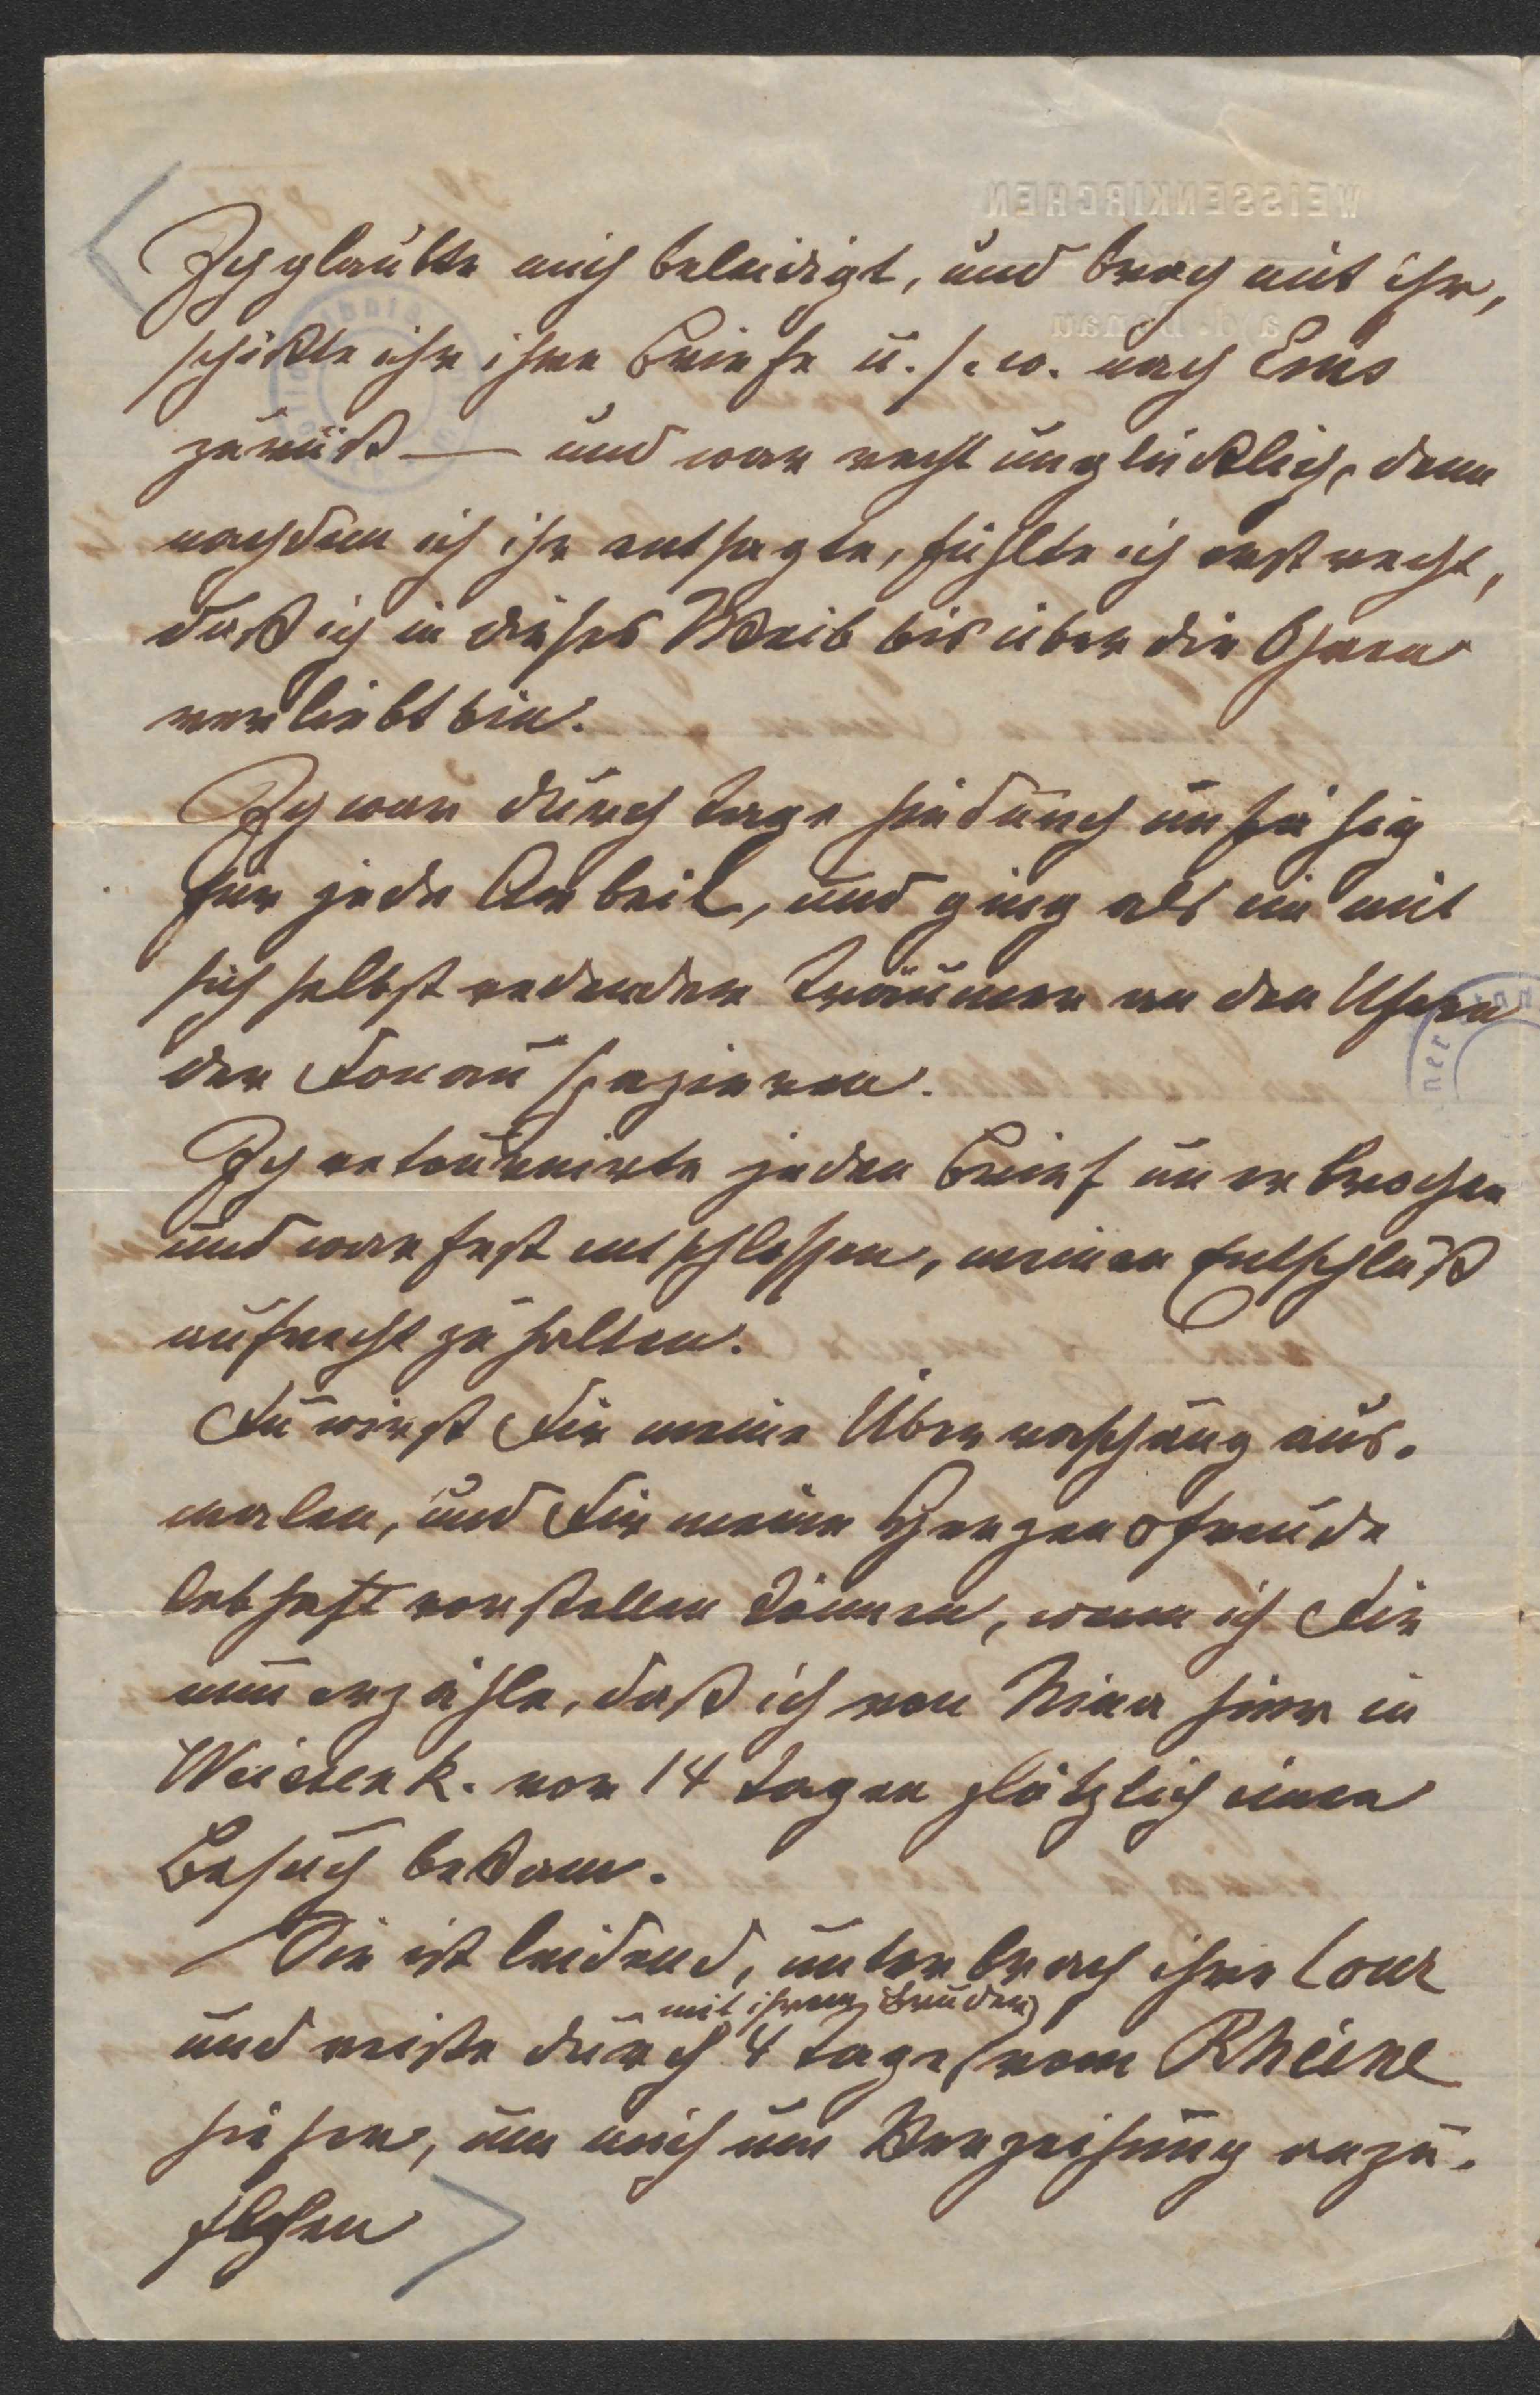 Ich glaubte mich beleidigt, und brach mit ihr,
schikte ihr ihre Briefe u. s. w. nach Ems
zurük — und war recht unglüklich, denn
nachdem ich ihr entsagte, fühlte ich erst recht,
daß ich in dieses Weib bis über die Ohren
verliebt bin.
Ich war durch Tage hindurch unfähig
für jede Arbeit, und ging als ein mit
sich selbst redender Träumer an den Ufern
der Donau spazieren.
Ich retournirte jeden Brief unerbrochen
und war fest entschlossen, meinen Entschluß
aufrecht zu halten.
Du wirst Dir meine Überraschung aus-
malen, und Dir meine Herzensfreude
lebhaft vorstellen können, wenn ich Dir
nun erzähle, daß ich von Nina hier in
Weissenk. vor 14 Tagen plötzlich einen
Besuch bekam.
Sie ist leidend, unterbrach ihre Cour
mit ihrem Bruder
und reiste durch 4 Tage vom Rheine
hieher, um mich um Verzeihung anzu-
flehen
WEISSENKIRCHEN
a. d. Donau